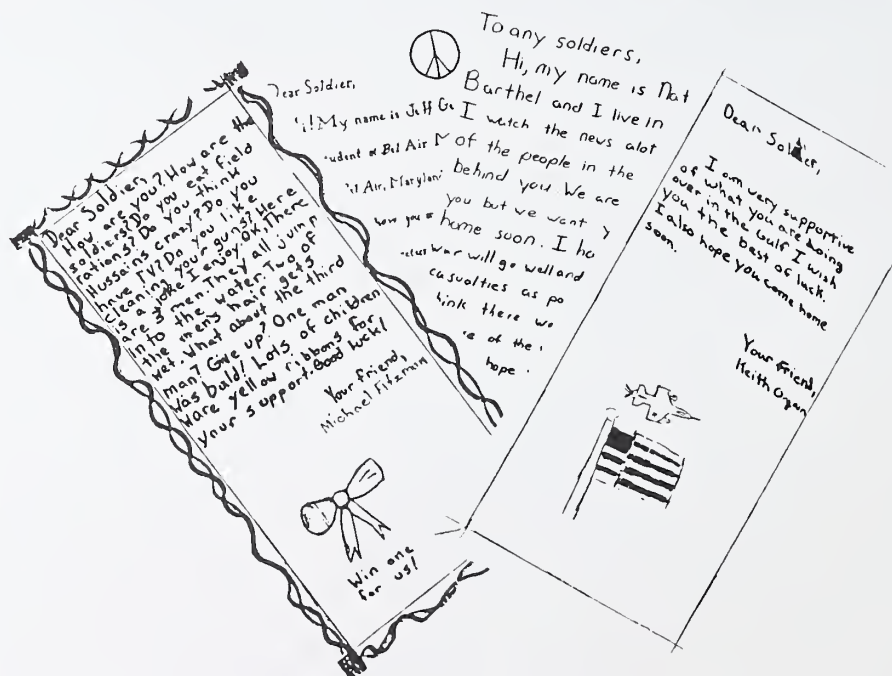 Dear Soldier,
How are you? How are the
soldiers? Do you eat field
rations? Do you think
Hussains crazy? Do you
have TV? Do you like
cleaning your guns? Here
is a joke I enjoy. OK, There
are 3 men. They all jump
into the water. Two of
the mens hair gets
wet. What about the third
man? Give up? One man
was bald! Lots of children
ware yellow ribbons for
your support. Good luck!
Your friend,
Michael
Win one
for us!
Dear Soldier,
My name is Jeff
Bel Air
Air, Maryland
you
War will go well and
casualties as
there
of the
hope
To any soldiers,
Hi, my name is Nat
Barthel and I live in
I watch the news alot
of the people in the
behind you We are
you but we want
home soon. I
Dear Soldier,
I am very supportive
of what you are doing
over in the Gulf I wish
you the best of luck.
I also hope you come home
soon.
Your friend,
Keith